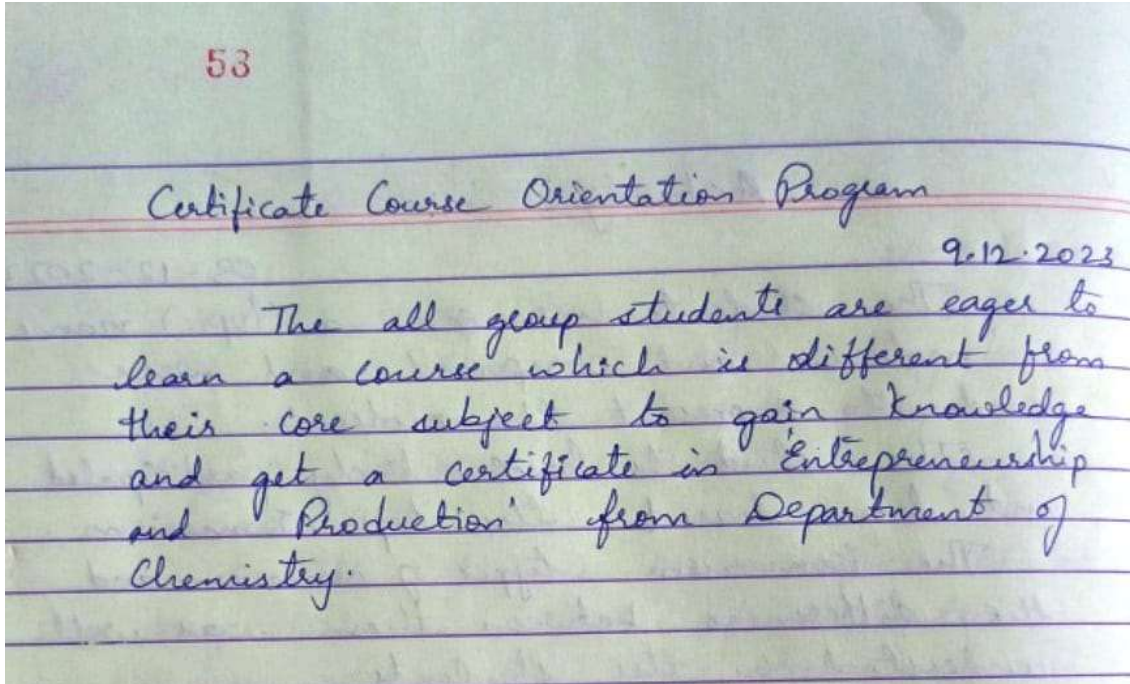 53
Certificate Course Orientation Program
9.12.2023
The all group students are eager to
learn a course which is different from
their core subject to gain knowledge
and get a certificate in 'Entrepreneurship
and Production' from Department of
Chemistry.